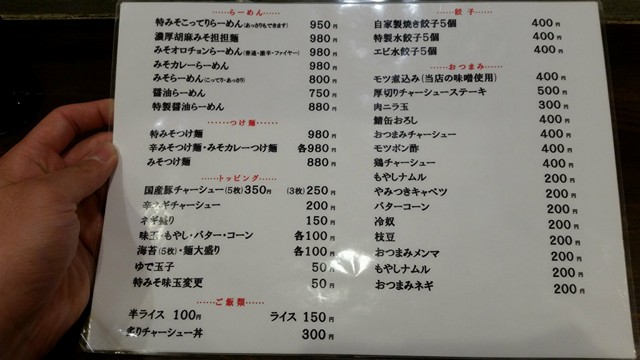 ……らーめん……
特みそこってりらーめん(あっさりもできます) 950円
濃厚胡麻みそ担担麺 980円
みそオロチョンらーめん(普通・激辛・ファイヤー) 980円
みそカレーらーめん 980円
みそらーめん(こってり・あっさり) 800円
醤油らーめん 750円
特製醤油らーめん 880円
……つけ麺……
特みそつけ麺 980円
辛みそつけ麺・みそカレーつけ麺 各980円
みそつけ麺 880円
……トッピング……
国産豚チャーシュー(5枚)350円 (3枚)250円
辛ネギチャーシュー 200円
ネギ盛り 150円
味玉・もやし・バター・コーン 各100円
海苔(5枚)・麺大盛り 各100円
ゆで玉子 50円
特みそ味玉変更 50円
……ご飯類……
半ライス 100円 ライス 150円
炙りチャーシュー丼 300円
……餃子……
自家製焼き餃子5個 400円
特製水餃子5個 400円
エビ水餃子5個 400円
……おつまみ……
モツ煮込み(当店の味噌使用) 400円
厚切りチャーシューステーキ 500円
肉ニラ玉 300円
鯖缶おろし 400円
おつまみチャーシュー 400円
モツポン酢 400円
鶏チャーシュー 400円
もやしナムル 200円
やみつきキャベツ 200円
バターコーン 200円
冷奴 200円
枝豆 200円
おつまみメンマ 200円
もやしナムル 200円
おつまみネギ 200円